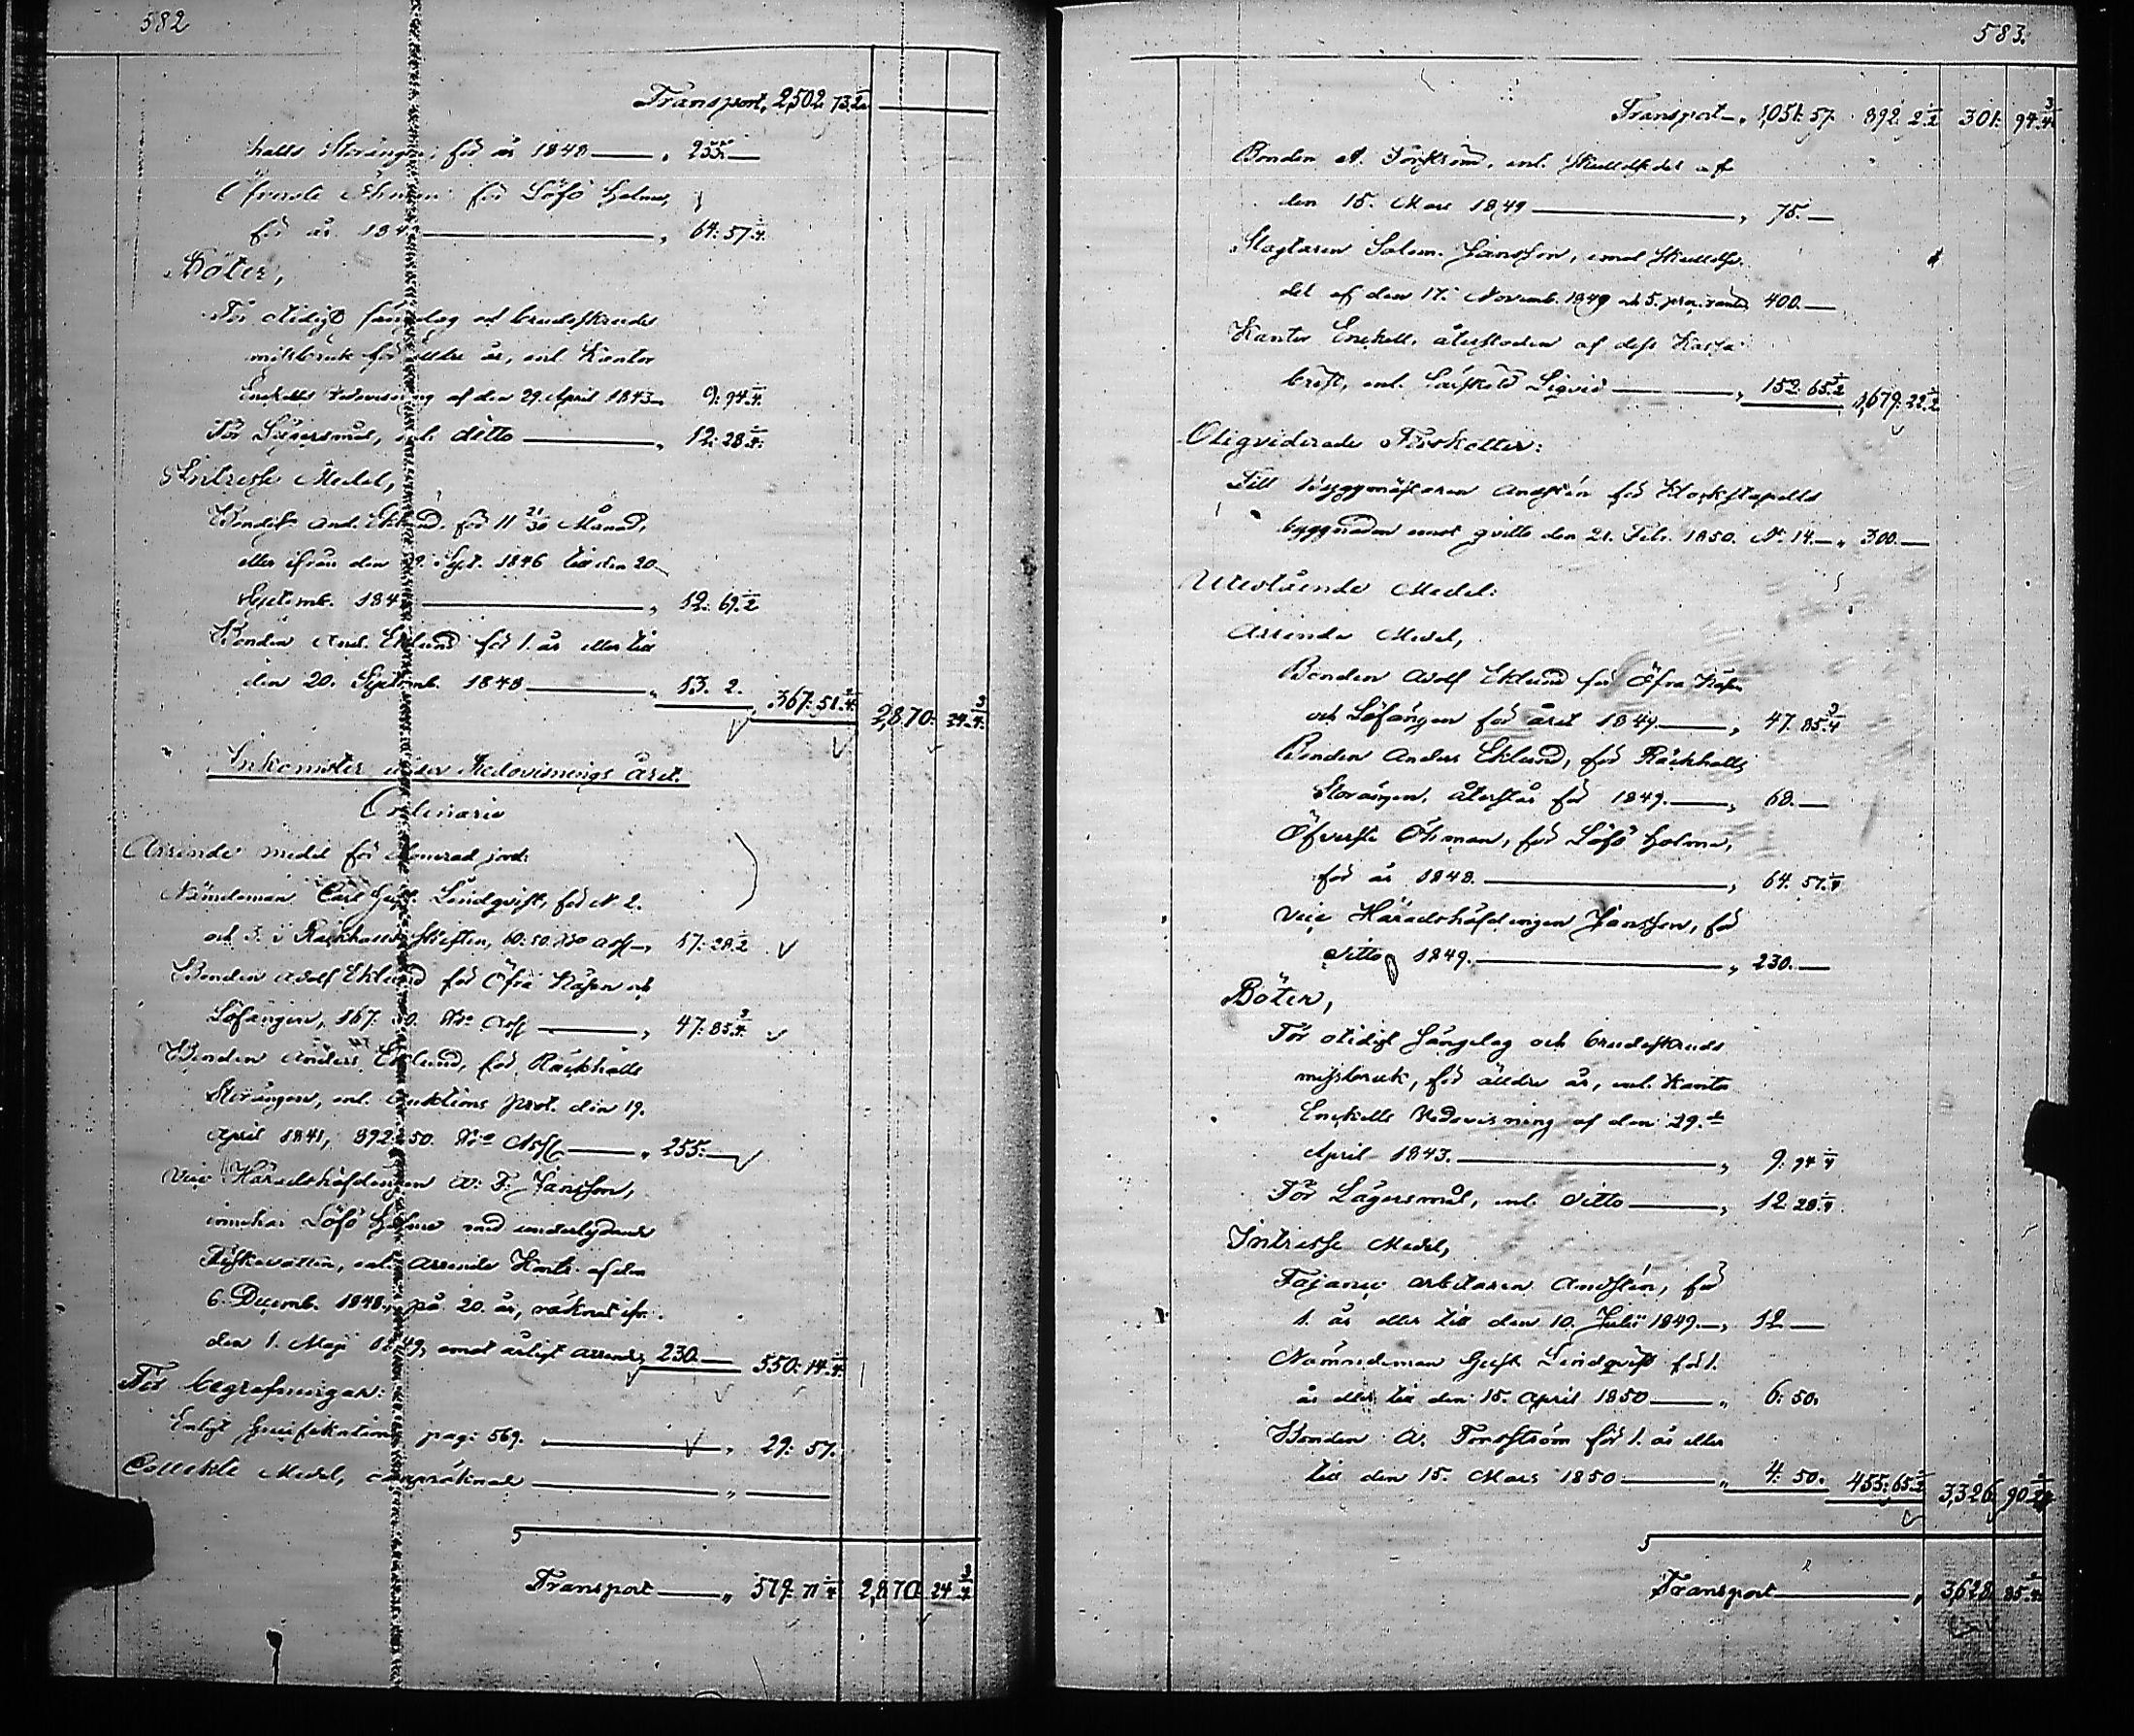 582
Transport, 2,502. 73.½
halls Storängen, för år 1848 — „ 255. —
Öfverste Öhman för Löfö Holme,
för år 184 — „ 64: 57.¼
Böter,
För otidigt sängelag och brudeskruds
missbruk för äldre år, enl. Kantor
Enckells Redovisning af den 29. April 1843 „ 9: 94.¼
För Lägersmål, enl. ditto — „ 12: 28.¼
Intresse Medel,
Bonden And. Eklund, för 11 21/30 Månad,
eller ifrån den Sept. 1846 till den 20
Septemb. 184 — „ 12: 69.½
Bonden And. Eklund för 1. år eller till
den 20. Septemb. 1848 — „ 13. 2. 367: 51.¼ 2,870: 24.¾
Inkomster under Redovisnings året.
Ordinarie
Arrende medel för Donerad jord:
Nämndeman Carl Gust. Lindqvist, för N 2.
och 3. i Räckhalls skiften, 60: 50. Bco Ass „ 17: 28.½
Bonden Adolf Eklund för Öfra Näsen och
Löfängen, 167: 50. Bco Ass — „ 47: 85.¾
Bonden Anders Eklund, för Räckhalls
Storängen, enl. Auktions prot. den 19.
April 1841, 892: 50. Bco Ass — „ 255: —
Vice Häradshöfdingen A: F: Jansson,
innehar Löfö Holme med underlydande
Fiskevatten, enl. Arrende Kontr. af den
6. Decemb. 1848, på 20. år, räknat ifr.
den 1. Maji 1849, emot årligt arrende 230. — 550: 14.¼
För begrafningar:
Enligt Specifikation pag: 569. — „ 29: 57.
Collekte Medel, — „ —
Transport — „ 579: 71¼ 2,870. 24¾
583.
Transport — „ 1,051: 57. 892. 2½ 301: 94.¾
Bonden A. Forsström, enl. Skuldsedel af
den 15. Mars 1849 — „ 75. —
Slagtaren Salom. Jansson, emot Skuldse
del af den 17. Novemb. 1849 och 5. pro. ränta 400. —
Kantor Enckell, återstoden af dess Kassa
brist, enl. Särskild Liqvid — „ 152: 65.½ 1,679: 22.½
Oliqviderade Förskotter:
Till Byggmästaren Andstén för Klockstapells
byggnaden emot qvitto den 21. Febr. 1850. N: 14. — „ 300. —
Utestående Medel:
Arrende Medel,
Bonden Adolf Eklund för Öfra Näsen
och Löfängen för året 1849. — „ 47. 85.¾
Bonden Anders Eklund, för Räckhalls
Storängen, återstår för 1849. — „ 68. —
Öfverste Öhman, för Löfö Holme,
för år 1848. — „ 64. 57.¼
Vice Häradshöfdingen Jansson, för
ditto 1849. — „ 230. —
Böter,
För otidigt sängelag och brudeskruds
missbruk, för äldre år, enl. Kantor
Enckells Redovisning af den 29.
April 1843. — „ 9. 94¼
För Lägersmål, enl. ditto — „ 12. 28.¼
Intresse Medel,
Fajance arbetaren Andstén, för
1. år eller till den 10. Julii 1849. — „ 12 —
Nämndeman Gust. Lindqvist för 1.
år eller till den 15. April 1850 — „ 6: 50.
Bonden A. Forsström för 1. år eller
till den 15. Mars 1850 — „ 4: 50. 455: 65 3,326: 90
Transport — „ 3,628. 85.